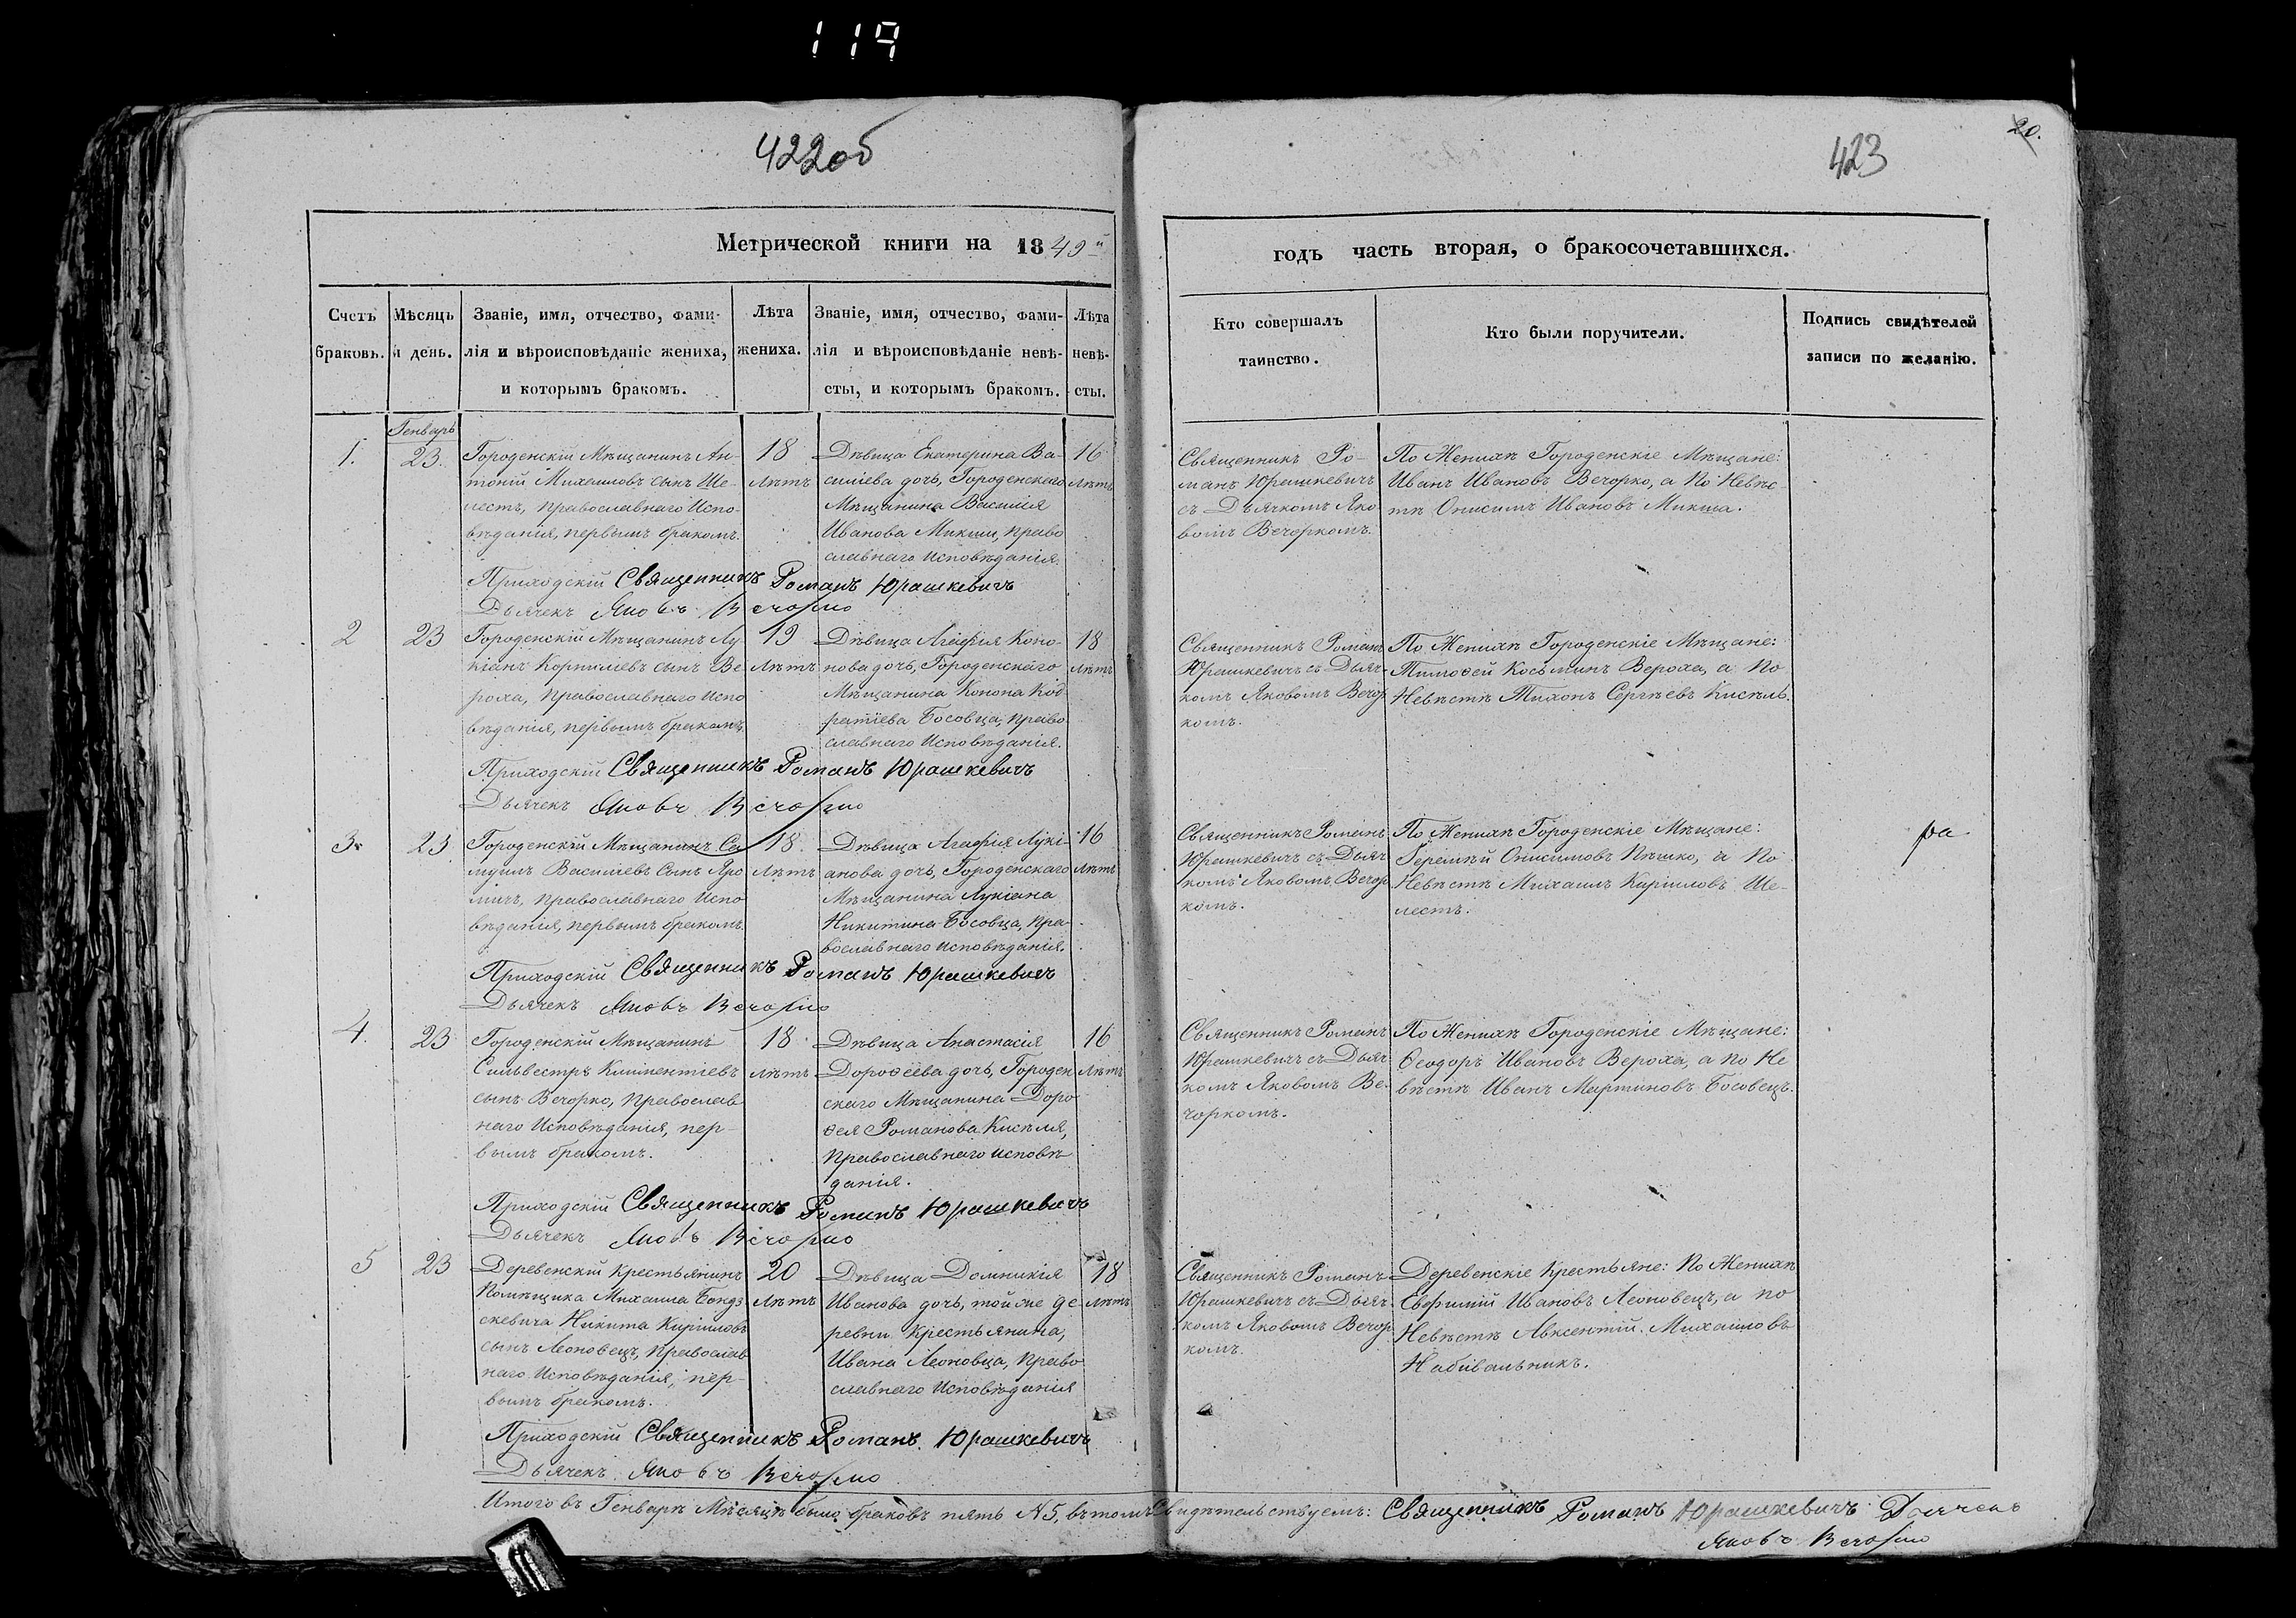 119
422об
423
20.
Метрической книги на 1849й
годъ часть вторая, о бракосочетавшихся.
Счетъ браковъ.
Мѣсяцъ и день.
Званіе, имя, отчество, фами-
лія и вѣроисповѣданіе жениха,
и которымъ бракомъ.
Лѣта жениха.
Званіе, имя, отчество, фами-
лія и вѣроисповѣданіе невѣ-
сты, и которымъ бракомъ.
Лѣта невѣ-
сты.
Кто совершалъ
таинство.
Кто были поручители.
Подпись свидѣтелей
записи по желанію.
Генварь
1.
23.
Городенскій Мѣщанинъ Ан-
тоній Михаиловъ сынъ Ше-
лестъ, православнаго Испо-
вѣданія, первымъ бракомъ.
18
лѣтъ
Дѣвица Екатерина Ва-
силіева дочь, Городенскаго
Мѣщанина Василія
Иванова Микши, право
славнаго Исповѣданія.
16
лѣтъ
Священникъ Ро-
манъ Юрашкевичъ
съ Дьячкомъ Яко
вомъ Вечоркомъ.
По Женихѣ Городенскіе Мѣщане:
Иванъ Ивановъ Вечорко, а по Невѣс
тѣ Онисимъ Ивановъ Микша.
Приходскій Священникъ Романъ Юрашкевичъ
Дьячекъ Яковъ Вечорко
2
23
Городенскій Мѣщанинъ Лу
кіанъ Корниліевъ сынъ Ве
роха, православнаго Испо
вѣданія, первымъ бракомъ.
19
лѣтъ
Дѣвица Агафія Коно-
нова дочь, Городенскаго
Мѣщанина Конона Код
ратіева Босовца, право
славнаго Исповѣданія.
18
лѣтъ
Священникъ Романъ
Юрашкевичъ съ Дьяч
комъ Яковомъ Вечор
комъ.
По Женихѣ Городенскіе Мѣщане:
Тимоѳей Косьминъ Вероха, а по
Невѣстѣ Тихонъ Сергѣевъ Кисѣль.
Приходскій Священникъ Романъ Юрашкевичъ
Дьячекъ Яковъ Вечорко
3
23
Городенскій Мѣщанинъ Са
муилъ Василіевъ Сынъ Яро
мичъ, православнаго Испо
вѣданія, первымъ бракомъ.
18
лѣтъ
Дѣвица Агафія Лукі-
анова дочь, Городенскаго
Мѣщанина Лукіана
Никитина Босовца, пра-
вославнаго исповѣданія.
16
лѣтъ
Священникъ Романъ
Юрашкевичъ съ Дьяч
комъ Яковомъ Вечор
комъ.
По Женихѣ Городенскіе Мѣщане:
Геремѣй Онисимовъ Пѣшко, а по
Невѣстѣ Михаилъ Кириловъ Ше-
лестъ.
Приходскій Священникъ Романъ Юрашкевичъ
Дьячекъ Яковъ Вечорко
4.
23
Городенскій Мѣщанинъ
Сильвестръ Климентіевъ
сынъ Вечорко, православ
наго Исповѣданія, пер-
вымъ бракомъ.
18
лѣтъ
Дѣвица Анастасія
Дороѳеева дочь, Городен
скаго Мѣщанина Доро
ѳея Романова Кисѣля,
православнаго исповѣ
данія.
16
лѣтъ
Священникъ Романъ
Юрашкевичъ съ Дьяч
комъ Яковомъ Ве-
чоркомъ.
По Женихѣ Городенскіе Мѣщане:
Ѳеодоръ Ивановъ Вероха, а по Не
вѣстѣ Иванъ Мартиновъ Босовецъ.
Приходскій Священникъ Романъ Юрашкевичъ
Дьячекъ Яковъ Вечорко
5
23
Деревенскій крестьянинъ
Помѣщика Михаила
Никита Кириловъ
сынъ Леоновецъ, православ
наго Исповѣданія, пер-
вымъ бракомъ.
20
лѣтъ
Дѣвица Домникія
Иванова дочь, той же де
ревни крестьянина,
Ивана Леоновца, право
славнаго Исповѣданія
18
лѣтъ
Священникъ Романъ
Юрашкевичъ съ Дьяч
комъ Яковомъ Вечор
комъ.
Деревенскіе крестьяне: по Женихѣ
Евфимій Ивановъ Леоновецъ, а по
Невѣстѣ Авксентій Михаиловъ
Набивальникъ.
Приходскій Священникъ Романъ Юрашкевичъ
Дьячекъ Яковъ Вечорко
Итого въ Генварѣ Мѣсяцѣ было браковъ пять № 5, въ томъ свидѣтельствуемъ: Священникъ Романъ Юрашкевичъ Дьячекъ
Яковъ Вечорко